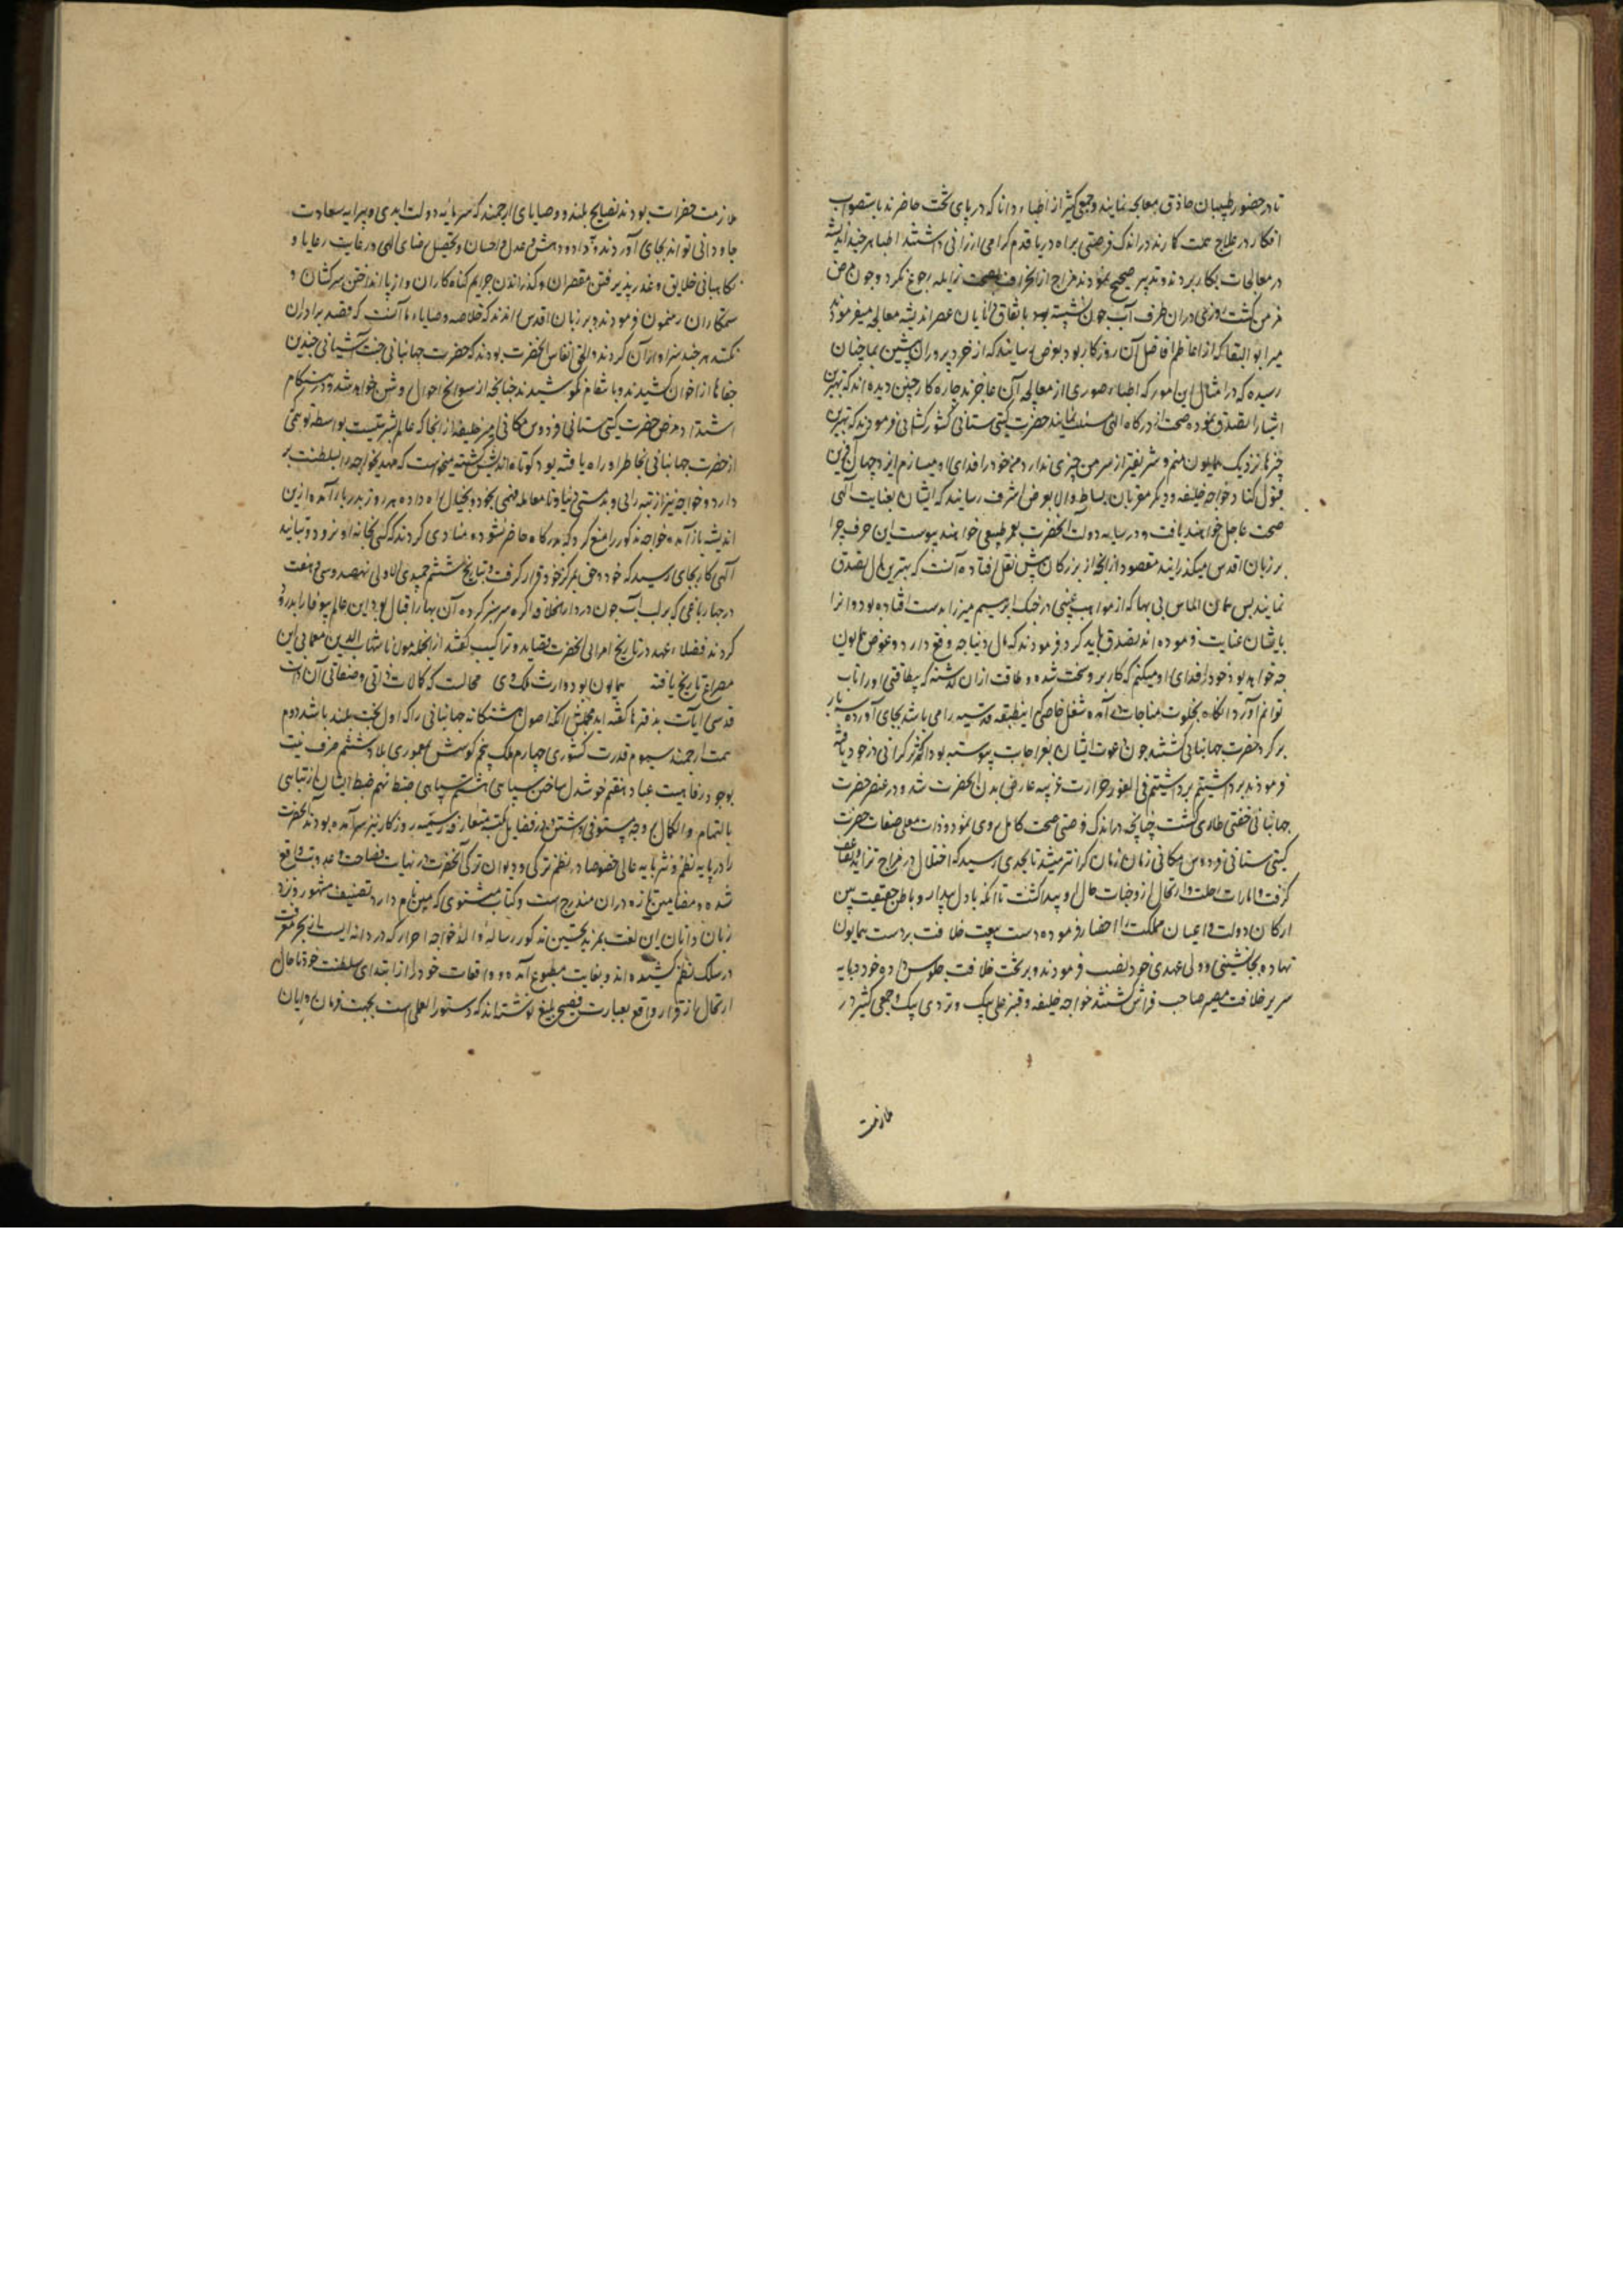 تا در حضور طبیبان حاذق معالجه نمایند و جمعی کثیر از اطباء دانا که در پای تخت حاضرند باستصواب
افکار در علاج همت کارند در اندک فرصتی براه دریا قدم گرامی ارزانی داشتند اطبا هر چند اندیشه
در معالجات بکار بردند و تدبیر صحیح نمودند مزاج از انحراف بصحت نرایله رجوع نکرد و چون مرض
مزمن گشت روزی در ان طرف آب جون نشسته بود باتفاق دانایان عصر اندیشه معالجه میفرمودند
میر ابو البقا که از اعاظم افاضل آن روزگار بود بعرض رسانید که از خرد پروران پیشین بما چنان
رسیده که در امثال این امور که اطباء صوری از معالجه آن عاجزند چاره کار چنین دیده اند که بهترین
اشیا را تصدق نموده صحت از درگاه الهی مسئلت نمایند حضرت گیتی ستانی کشور گشائی فرمودند که بهترین
چیزها نزدیک همایون منم و شریفتر از من چیزی ندارد من خود را فدای او میسازم ایزد جهان آفرین
قبول کناد خواجه خلیفه و دیگر مقربان بساط والا بعرض اشرف رسانیدند که ایشان بعنایت الهی
صحت عاجل خواهند یافت و در سایه دولت آنحضرت بعمر طبیعی خواهند پیوست این حرف چرا
بر زبان اقدس میگذرانید مقصود از آنچه از بزرگان پیش نقل افتاده آنست که بهترین مال تصدق
نمایند پس همان الماس بی بها که از مواهب غیبی در جنک ابراهیم میرزا بدست افتاده بود و انرا
بایشان عنایت فرموده اند تصدق باید کرد فرمودند که مال دنیا چه وقع دارد و عوض همایون
چه خواهد بود خود را فدای او میکنم که کار برو سخت شده و طاقت ازان گذشته که بیطاقتی او را تاب
توانم آورد انگاه بخلوت مناجات در آمده شغل خاصی که اینطبقه قدسیه را می باشد بجای آورده سه بار
بر گرد حضرت جهانبانی گشتند چون دعوت ایشان بعز اجابت پیوسته بود اثر گرانی در خود یافته
فرمودند برداشتیم برداشتیم فی الفور حرارت غریبه عارض بدن آنحضرت شد و در عنصر حضرت
جهانبانی خفتی طاری گشت چنانچه در اندک فرصتی صحت کامل روی نمود و ذات معلی صفات حضرت
گیتی ستانی فردوس مکانی زمان زمان گرانتر میشد تا بحدی رسید که اختلال در مزاج تزاید و تضاعف
گرفت و امارات رحلت و ارتحال از وجنات حال او پیدا گشت تا انکه با دل بیدار و باطن حقیقت بین
ارکان دولت و اعیان مملکت را احضار فرموده دست بیعت خلافت بر دست همایون
نهاده بجانشینی و ولی عهدی خود نصب فرمودند و بر تخت خلافت جلوس داده خود در پایه
سریر خلافت مصیر صاحب فراش گشتند خواجه خلیفه و قنبر علی بیک و تردی بیک و جمعی کثیر در
ملازمت
ملازمت حضرات بودند نصایح بلند و وصایای ارجمند که سرمایه دولت ابدی و پیرایه سعادت
جاودانی تواند بجای آوردند و بداد و دهش و عدل و احسان و تحصیل رضای الهی در عایت رعایا و
نگاهبانی خلایق و عذر پذیرفتن مقصران و گذراندن جرایم گناه کاران و از پا انداختن سرکشان و
ستمکاران رهنمون فرمودند و بر زبان اقدس راندند که خلاصه وصایاء ما آنست که قصد برادران
نکنند هر چند سزاوار آن گردند و الحق انفاس آنحضرت بودند که حضرت جهانبانی جنت آشیانی چندین
جفاها از اخوان کشیدند و بانتقام نکوشیدند چنانچه از سوانح احوال روشن خواهد شد و در هنگام
اشتداد مرض حضرت گیتی ستانی فردوس مکانی میر خلیفه از انجا که عالم بشریتست بواسطه توهمی
از حضرت جهانبانی بخاطر او راه یافته بود کوتاه اندیش گشته میخواست که مهدی خواجه را بسلطنت بر
دارد و خواجه نیز از تبه رایی و بدمستی دنیا و نامعامله فهمی بخود و بخیال راه داده هر روز بدربار آمده ازین
اندیشه باز آمده خواجه مذکور را منع کرد که بدرگاه حاضر نشود و منادی کردند که کسی بخانه او نرود و بتائید
آلهی کار بجای رسید که خود و حق بمرکز خود قرار گرفت و بتاریخ ششم جمیدی الاولی نهصد و سی و هفت
در چهار باغی که بر لب آب جون در دار الخلافه اگره سرسبز کرده آن بهار اقبال بود این عالم بیوفا را بدرود
کردند فضلاء عهد در تاریخ آنحضرت قصاید و تراکیب گفتند از انجمله مولانا شهاب الدین معمائی این
مصراع تاریخ یافته همایون بود وارث ملک وی محالست که کمالات ذاتی و صفاتی آن ذات
قدسی آیات بدفترها گفته اید مجملش انکه اصول هشتگانه جهانبانی را که اول بخت بلند باشد دوم
همت ارجمند سیوم قدرت کشوری چهارم ملک پنجم کوشش معموری بلاد ششم صرف نیت
بوجود رفاهیت عباد هفتم خوشدل ساختن سپاهی هشتم سپاهی ضبط نهم ضبط ایشان از تباهی
بالتمام و الکمال وجه پستوئی داشتن و در فضایل مکتسبه متعارفه رسمیه روزگار نیز سرآمده بودند آنحضرت
را در پایه نظم و نثر پایه عالی خصوصا در نظم ترکی و دیوان ترکی آنحضرت در نهایت فصاحت و عذوبت واقع
شده و مضامین تازه در ان مندرج است و کتاب مثنوی که مبین نام دارد تصنیف مشهور و نزد
زبان دانان این لغت بمزید تحسین مذکور رساله والدیه خواجه احرار که دردانه ایست از بحر معرفت
در سلک نظم کشیده اند و بغایت مطبوع آمده و واقعات خود را از ابتدای سلطنت خود تا حال
ارتحال از قرار واقع بعبارت فصیح و بلیغ نوشته اند که دستور العملی است بجهت فرمان روایان